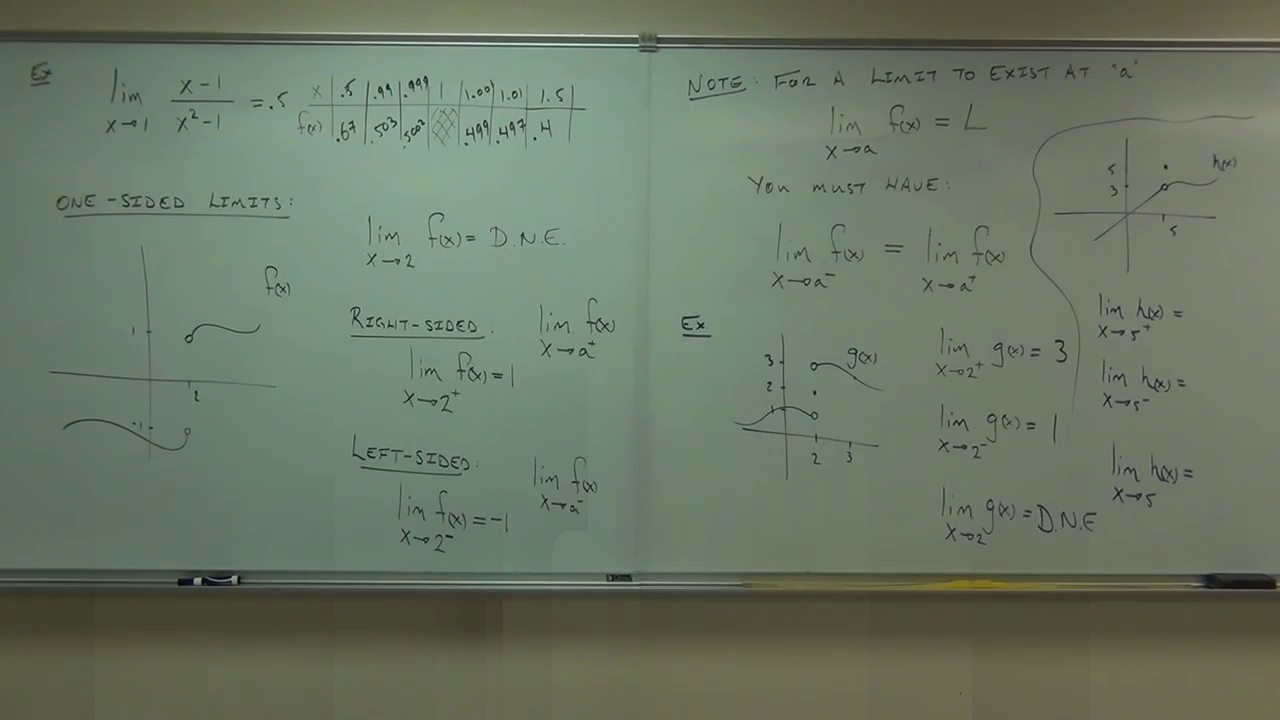 Ex
lim x→1 x-1 / x²-1 = .5
x .5 .99 .999 1 1.001 1.01 1.5
f(x) .67 .503 .5002 .499 .497 .4
ONE-SIDED LIMITS:
f(x)
1
2
-1
lim x→2 f(x) = D.N.E.
RIGHT-SIDED: lim x→a⁺ f(x)
lim x→2⁺ f(x) = 1
LEFT-SIDED: lim x→a⁻ f(x)
lim x→2⁻ f(x) = -1
NOTE: FOR A LIMIT TO EXIST AT "a"
lim x→a f(x) = L
YOU MUST HAVE:
lim x→a⁻ f(x) = lim x→a⁺ f(x)
Ex
g(x)
3
2
1
2 3
lim x→2⁺ g(x) = 3
lim x→2⁻ g(x) = 1
lim x→2 g(x) = D.N.E
h(x)
5
3
5
lim x→5⁺ h(x) =
lim x→5⁻ h(x) =
lim x→5 h(x) =